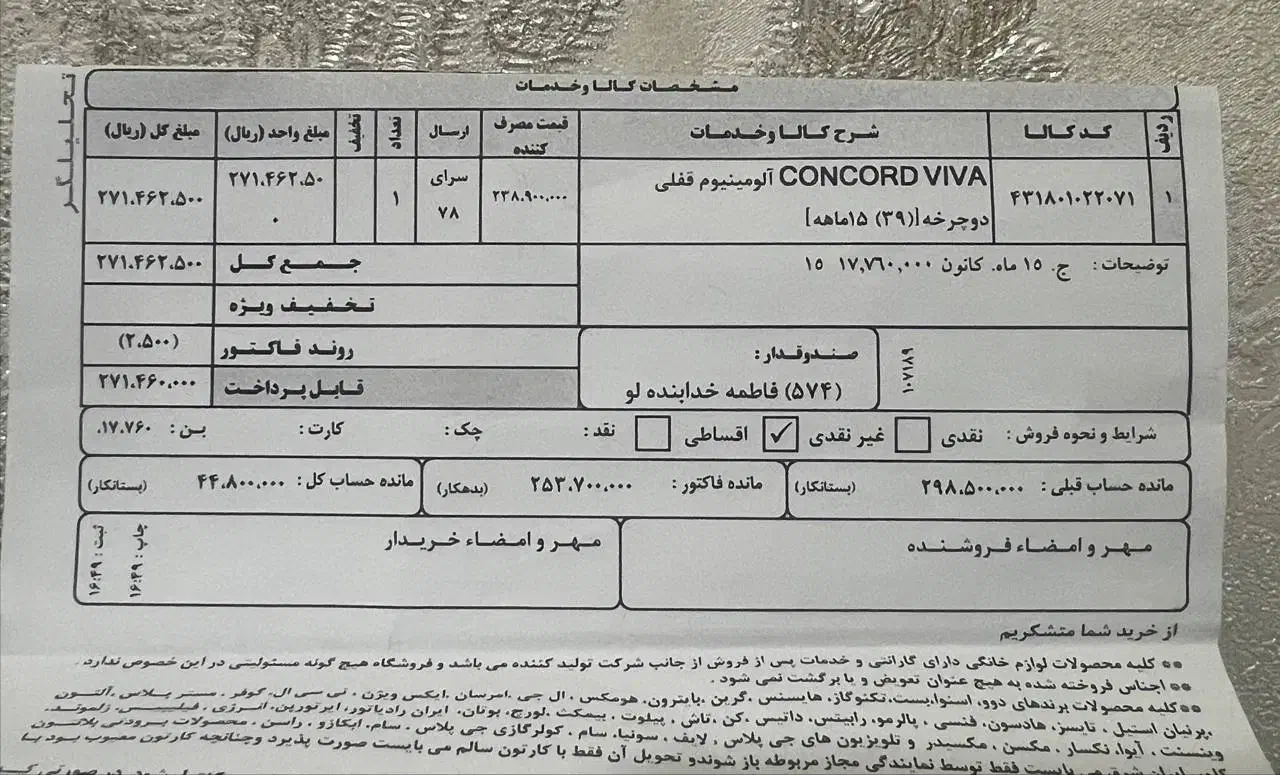 مشخصات کالا وخدمات
تحلیلگر
ردیف کد کالا شرح کالا وخدمات قیمت مصرف کننده ارسال تعداد تخفیف مبلغ واحد (ریال) مبلغ کل (ریال)
۱ ۴۳۱۸۰۱۰۲۲۰۷۱ CONCORD VIVA آلومینیوم قفلی ۲۳۸.۹۰۰.۰۰۰ سرای ۷۸ ۱ ۲۷۱.۴۶۲.۵۰۰ ۲۷۱.۴۶۲.۵۰۰
دوچرخه[(۳۹) ۱۵ماهه]
توضیحات : ج. ۱۵ ماه. کانون ۱۷,۷۶۰,۰۰۰ ۱۵
جمع کل ۲۷۱.۴۶۲.۵۰۰
تخفیف ویژه
روند فاکتور (۲.۵۰۰)
قابل پرداخت ۲۷۱.۴۶۰.۰۰۰
۱۰۷۱۸۹
صندوقدار :
(۵۷۴) فاطمه خدابنده لو
شرایط و نحوه فروش : نقدی غیر نقدی ✓ اقساطی نقد : چک : کارت : بن : ۱۷.۷۶۰.
مانده حساب قبلی : ۲۹۸.۵۰۰.۰۰۰ (بستانکار) مانده فاکتور : ۲۵۳.۷۰۰.۰۰۰ (بدهکار) مانده حساب کل : ۴۴.۸۰۰.۰۰۰ (بستانکار)
مهر و امضاء فروشنده مهر و امضاء خریدار
چاپ : ۱۶:۴۹
ثبت : ۱۶:۴۹
از خرید شما متشکریم
** کلیه محصولات لوازم خانگی دارای گارانتی و خدمات پس از فروش از جانب شرکت تولید کننده می باشد و فروشگاه هیچ گونه مسئولیتی در این خصوص ندارد .
** اجناس فروخته شده به هیچ عنوان تعویض و یا برگشت نمی شود .
**کلیه محصولات برندهای دوو، اسنوا،بست،تکنوگاز، هایسنس، گرین، پایترون، هومکس، ال جی، امرسان، ایکس ویژن ، تی سی ال، کوفر، مستر پلاس، آلتون
،پرنیان استیل ، تایسز، هادسون، فنسی ، پالرمو، رابیتس، داتیس، کن ،تاش ، پیلوت ، بیمکث، لورچ، بوتان، ایران رادیاتور، ایرتورین، انرژی ، فیلیپس،
وینسنت ، آیوا، نکسار، مکسن، مکسیدر و تلویزیون های جی پلاس ، لایف ، سونیا، سام ، کولرگازی جی پلاس، سام، ایکازو ، راسن ، محصولات برودتی پلاتون
می بایست فقط توسط نمایندگی مجاز مربوطه باز شوندو تحویل آن فقط با کارتون سالم می بایست صورت پذیرد وچنانچه کارتون معیوب بود